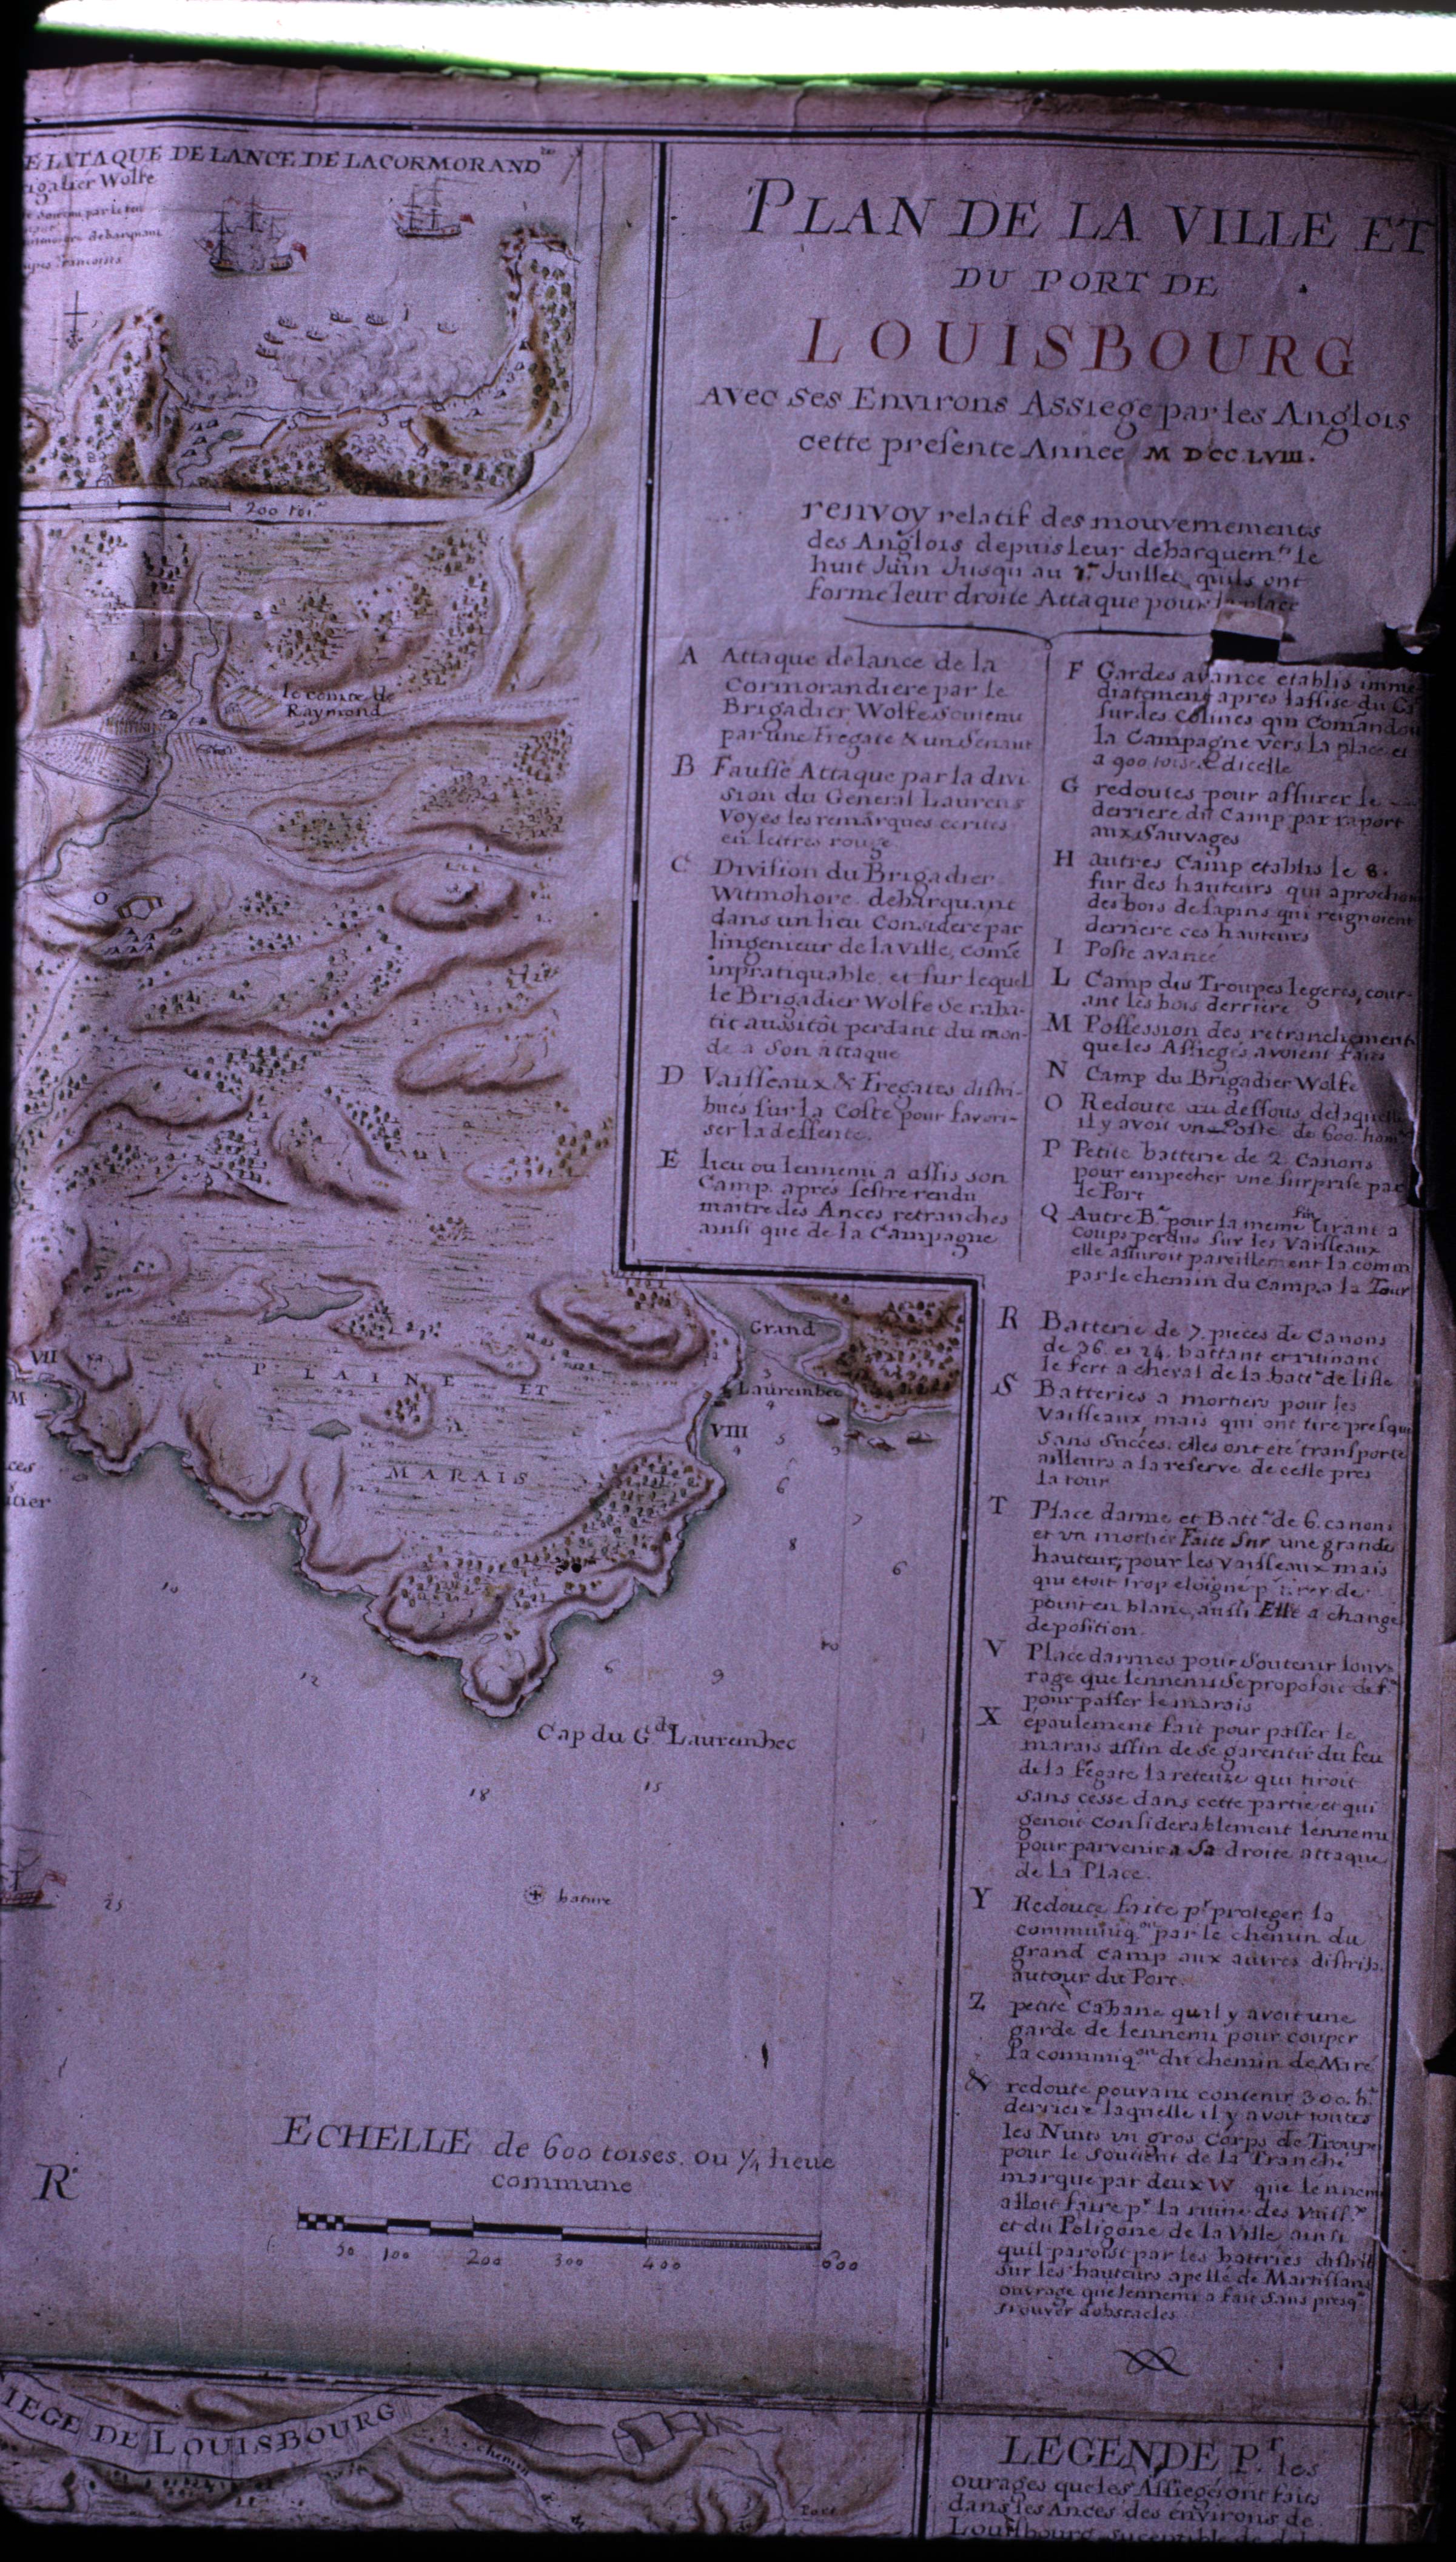 E LATAQUE DE LANCE DE LACORMORAND
rigadier Wolfe
200 toi.
le comte de
Raymond
O
VII
M
PLAINE ET
MARAIS
Grand
Laurembec
VIII
Cap du G.de Laurembec
10
12
18
15
25
6
9
8
6
bature
R.
ECHELLE de 600 toises. ou 1/4 lieue
commune
50 100 200 300 400 600
IEGE DE LOUISBOURG
chemin
Port
PLAN DE LA VILLE ET
DU PORT DE
LOUISBOURG
Avec Ses Environs Assiege par les Anglois
cette presente Année M DCC LVIII.
renvoy relatif des mouvements
des Anglois depuis leur debarquem.t le
huit Juin Jusqu au 1.er Juillet, quils ont
forme leur droite Attaque pour la place
A Attaque delance de la
Cormorandiere par le
Brigadier Wolfe Soutenu
par une Fregate & un Senaut
B Fausse Attaque par la divi
sion du General Laurens
Voyes les remarques ecrites
en lettres rouge
C Division du Brigadier
Witmohore debarquant
dans un lieu Considere par
lingenieur de la ville, come
inpratiquable et sur lequel
le Brigadier Wolfe Se raba-
tit aussitôt perdant du mon-
de a Son attaque
D Vaisseaux & Fregates distri-
bués sur la Coste pour favori-
ser la deffente.
E lieu ou lennemi a assis son
Camp aprés sestre rendu
maitre des Ances retranchés
ainsi que de la Campagne
F Gardes avance etablis imme-
diatement apres lassise du C.
sur des Colines qui Comandou
la Campagne vers la place et
a 900 toises dicelle
G redoutes pour assurer le
derriere du Camp par raport
aux Sauvages
H autres Camp etablis le 8.
sur des hauteurs qui aprochon
des bois de sapins qui reignoient
derriere ces hauteurs
I Poste avancé
L Camp des Troupes legeres, cour-
ant les bois derriere
M Possession des retranchement
que les Assiegés avoient faits
N Camp du Brigadier Wolfe
O Redoute au dessous delaquelle
il y avoit un Poste de 600. hom
P Petite batterie de 2. Canons
pour empecher une surprise par
le Port
Q Autre B.e pour la meme fin tirant a
coups perdus sur les Vaisseaux
elle assuroit pareillement la comm
par le chemin du Camp a la Tour
R Batterie de 7. pieces de Canons
de 36. et 24. battant et ruinant
le fort a cheval de la batt.e de lisle
S Batteries a mortiers pour les
Vaisseaux, mais qui ont tiré presque
Sans Succés. elles ont eté transporte
ailleurs a la reserve de celle pres
la tour
T Place darme et Batt.e de 6. canons
et un mortier Faite Sur une grande
hauteur, pour les Vaisseaux mais
qui etoit trop eloigné p.r tirer de
point en blanc, aussi Elle a changé
de position.
V Place darmes pour Soutenir louv-
rage que lennemi Se proposoit de f.
pour passer le marais
X épaulement fait pour passer le
marais affin de se garentir du feu
de la Fégate lareteuze qui tiroit
Sans cesse dans cette partie et qui
genoit considerablement lennemi
pour parvenir a Sa droite attaque
de la Place.
Y Redoute faite p.r proteger la
communiq.on par le chemin du
grand camp aux autres distrib.
autour du Port.
Z petite Cabane quil y avoit une
garde de lennemi pour couper
la comuniq.on du chemin de Miré
& redoute pouvant contenir 300. h.
derriere laquelle il y avoit toutes
les Nuits un gros Corps de Troupe
pour le Soutient de la Tranché
marque par deux W que lennemi
alloit faire p.r la ruine des Vaiss.x
et du Poligone de la Ville ainsi
quil paroist par les batteries distrib
sur les hauteurs apellé de Martissans
ouvrage que lennemi a fait Sans presq.
trouver dobstacles
LEGENDE P.r les
ourages que les Assiegé ont faits
dans les Ances des environs de